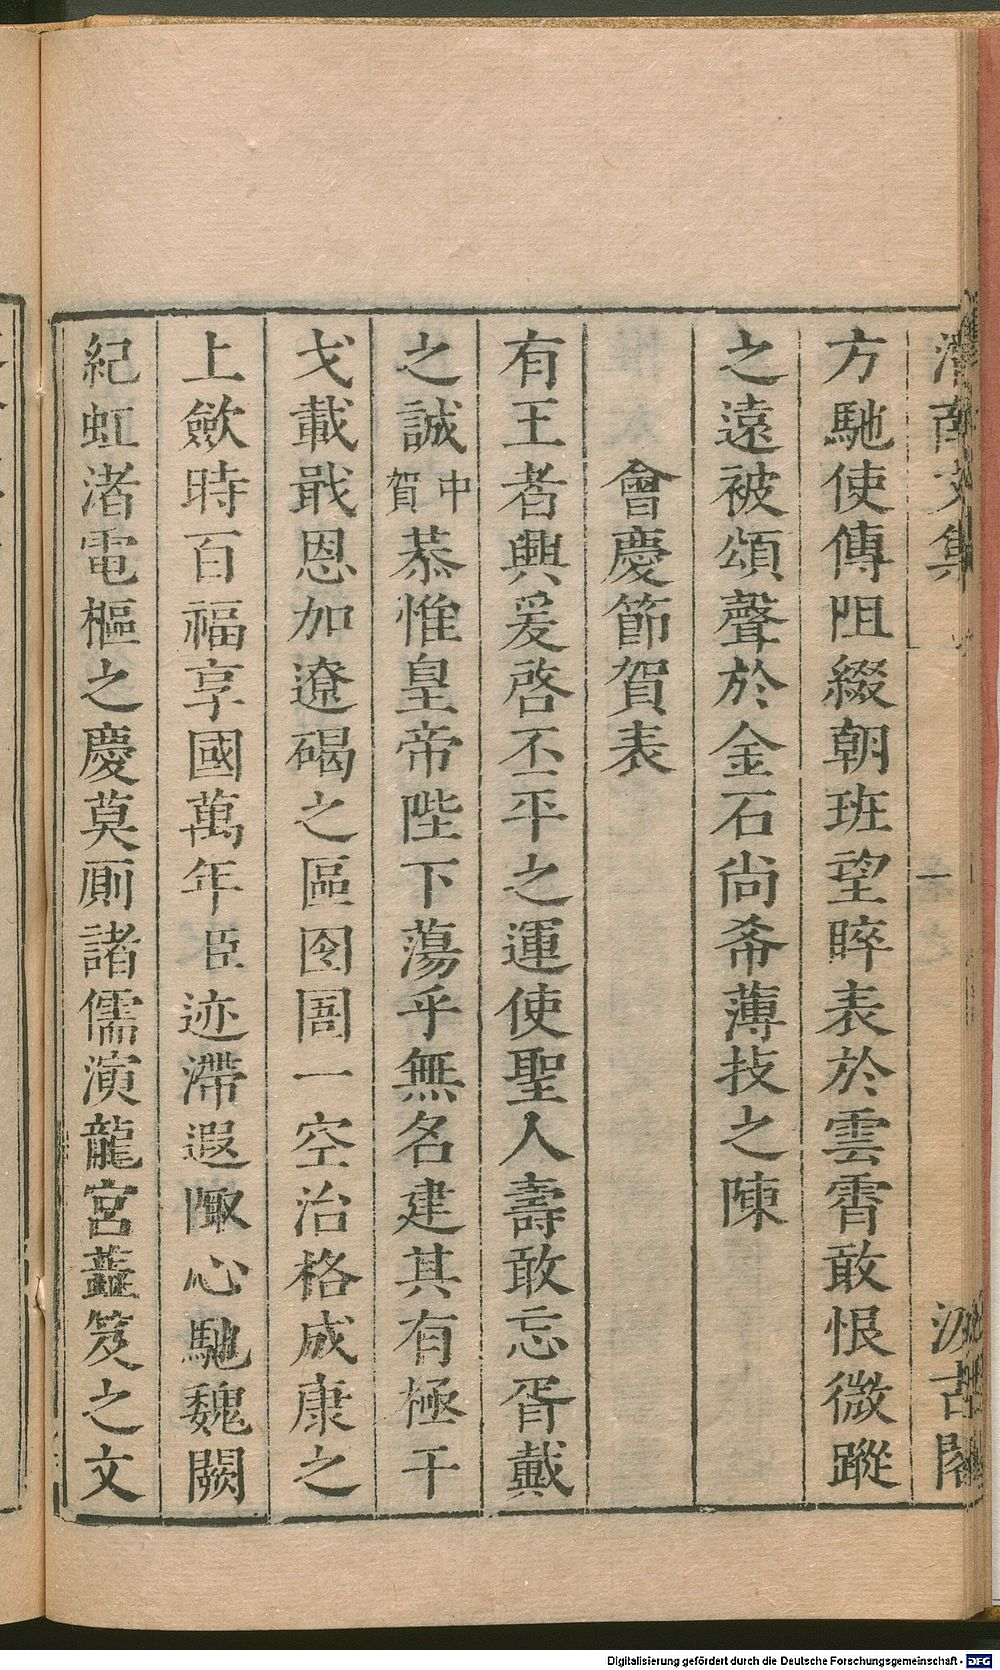 文集
一
汲古閣
方馳使傳阻綴朝班望睟表於雲霄敢恨微蹤
之遠被頌聲於金石尚希薄技之陳
會慶節賀表
有王者興爰啓丕平之運使聖人壽敢忘胥戴
之誠中賀恭惟皇帝陛下蕩乎無名建其有極干
戈載戢恩加遼碣之區囹圄一空治格成康之
上斂時百福享國萬年臣迹滯遐陬心馳魏闕
紀虹渚電樞之慶莫厠諸儒演龍宮蘂笈之文
Digitalisierung gefördert durch die Deutsche Forschungsgemeinschaft - DFG